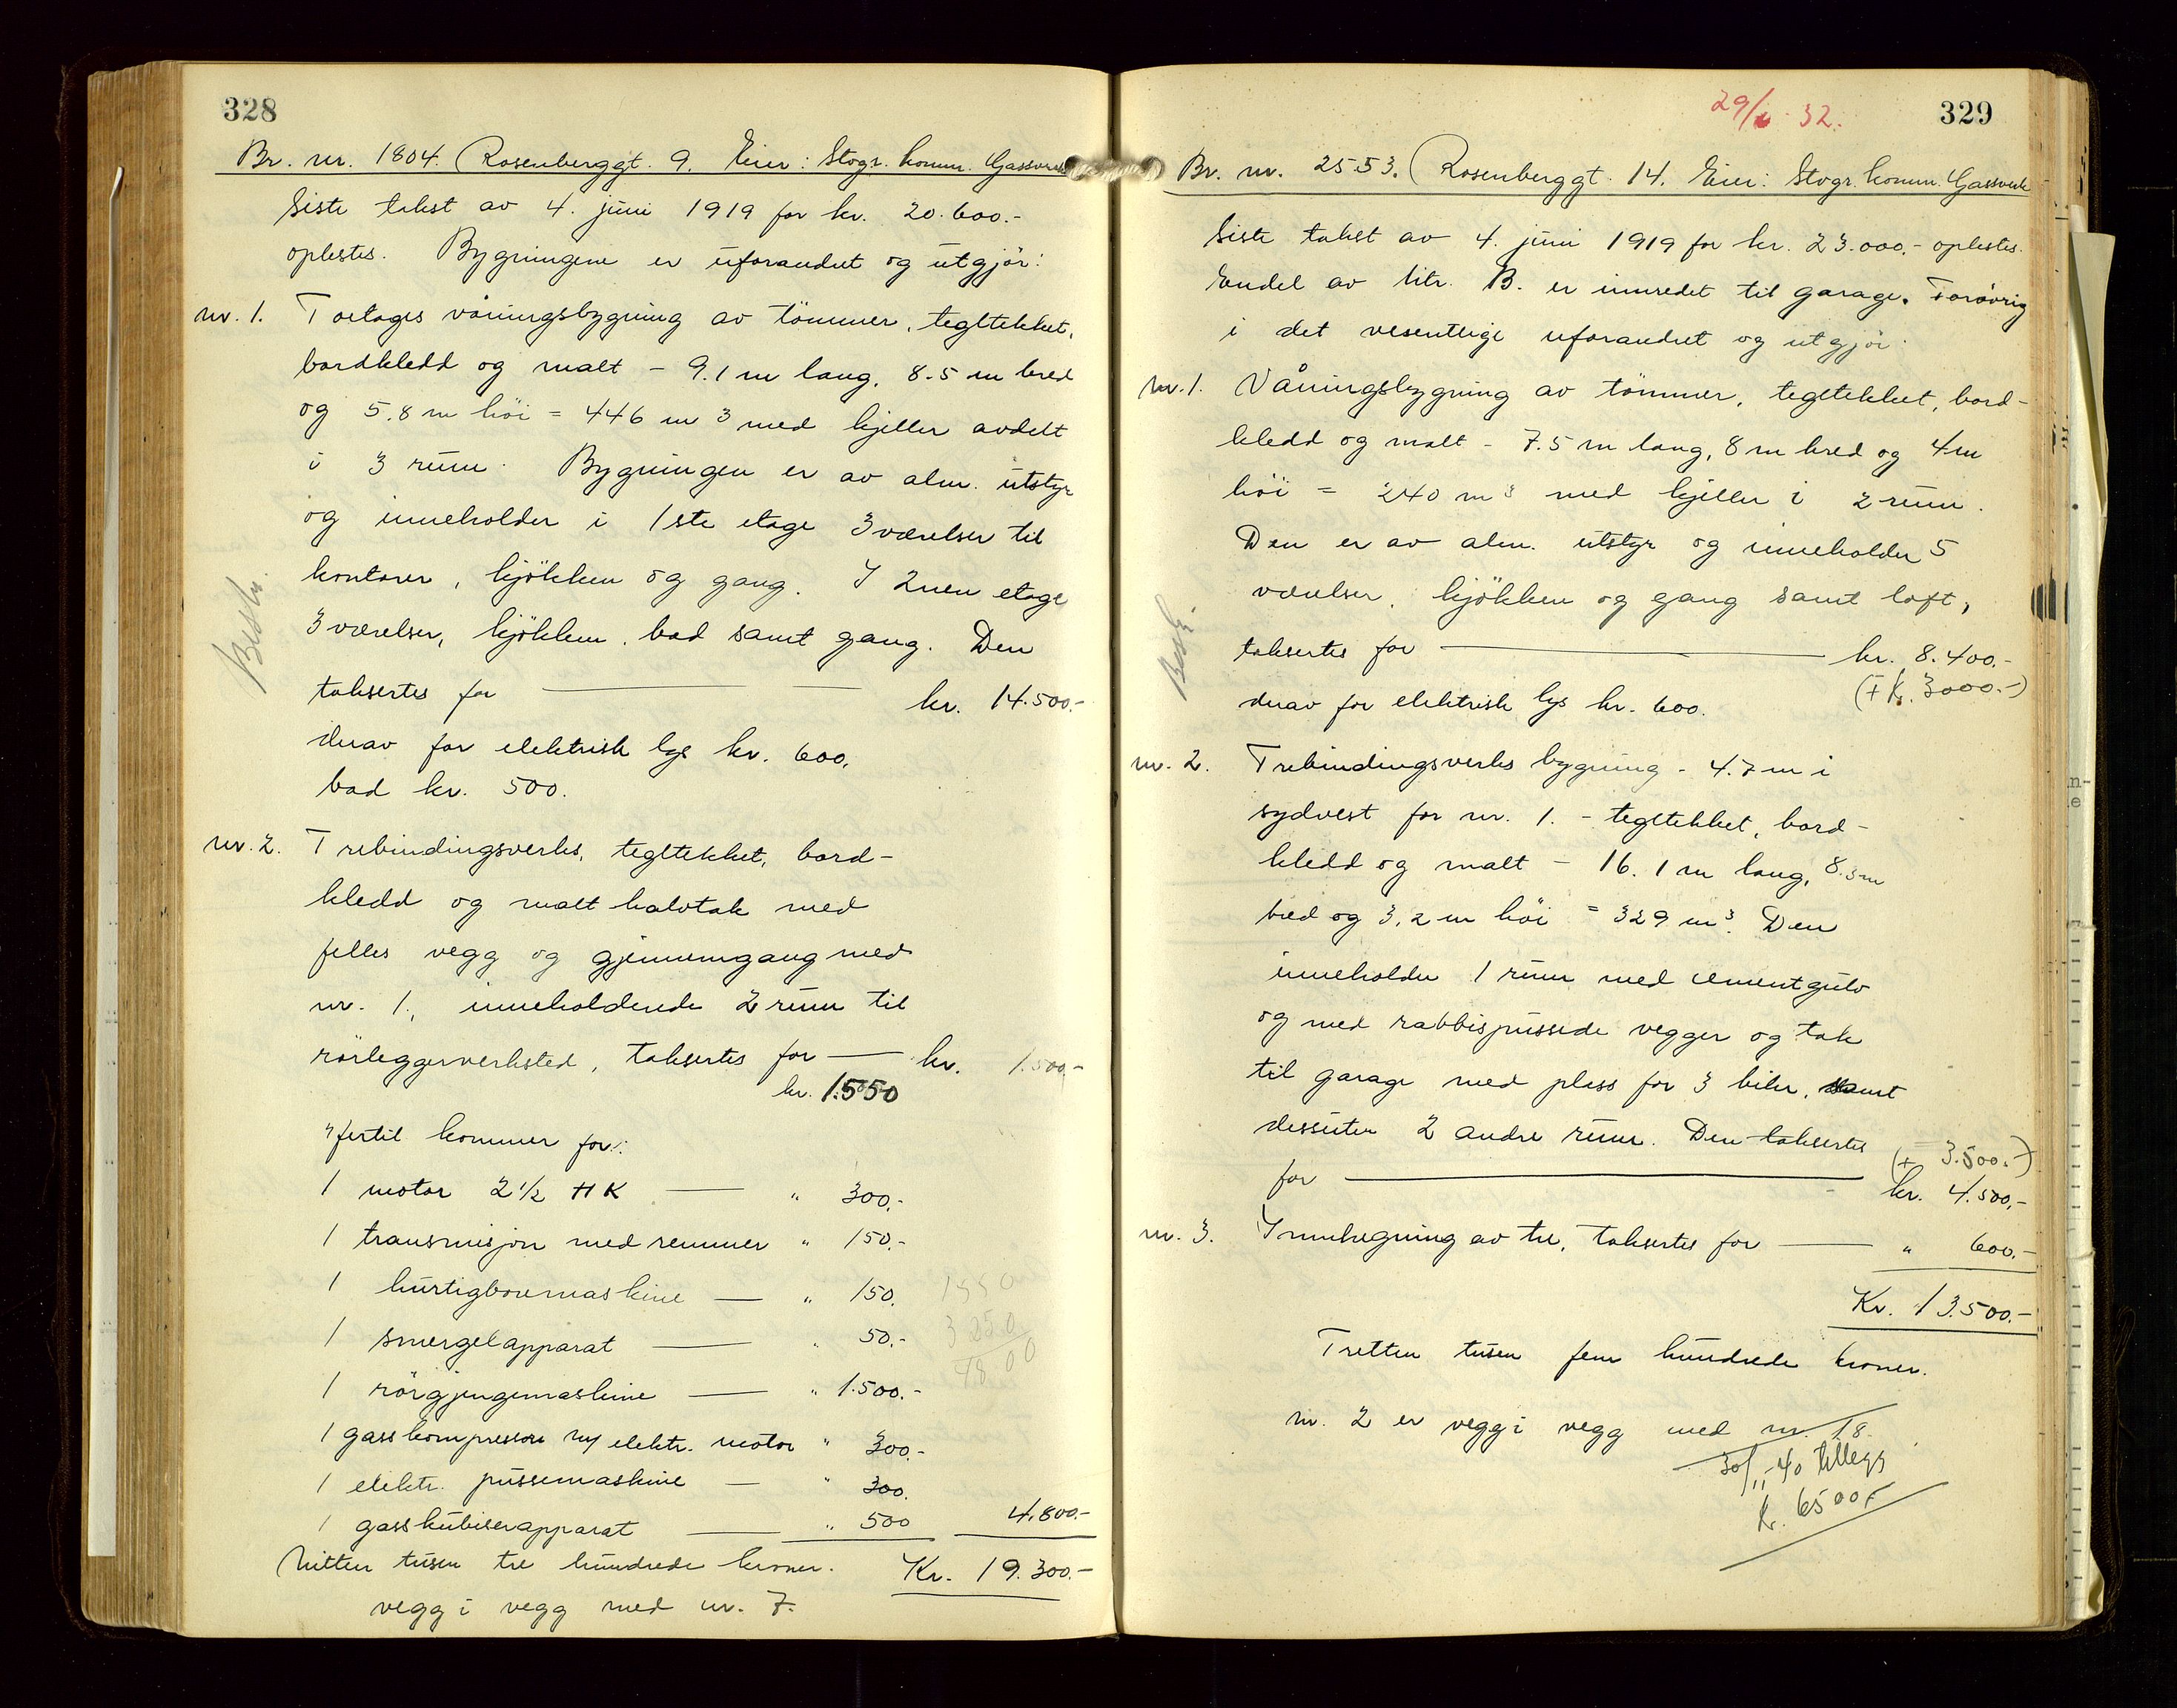 328
Br. nr. 1804. Rosenberggt. 9. Eier: Stvgr. komm. Gassverk
Siste takst av 4. juni 1919 for kr. 20.600.-
oplestes. Bygningene er uforandret og utgjör:
nr. 1. Toetages våningsbygning av tömmer, tegltekket,
bordkledd og malt - 9.1 m lang, 8.5 m bred
og 5,8 m höi = 446 m3 med kjeller avdelt
i 3 rum. Bygningen er av alm. utstyr
og inneholder i 1ste etage 3 værelser til
kontorer, kjökken og gang. I 2nen etage
3 værelser, kjökken, bad samt gang. Den
taksertes for kr. 14.500.-
derav for elektrisk lys kr. 600,
bad kr. 500.
nr. 2. Trebindingsverks, tegltekket, bord-
kledd og malt halvtak med
felles vegg og gjennemgang med
nr. 1., inneholdende 2 rum til
rörleggerverksted, taksertes for kr. 1.500.-
kr. 1.550
hertil kommer for:
1 motor 2 1/2 HK " 300.-
1 transmisjon med remmer " 150.-
1 hurtigboremaskine " 150. 1550
1 smergelapparat " 50.- 3250
4800
1 rörgjengemaskine " 1.500.-
1 gasskompressor m/ elektr. motor " 300.-
1 elektr. pussemaskine " 300.
1 gasskubiserapparat " 500 4.800.-
Nitten tusen tre hundrede kroner. Kr. 19.300.-
vegg i vegg med nr. 7.
329
Br. nr. 2553. Rosenberggt. 14. Eier: Stvgr. komm. Gassverk
Siste takst av 4. juni 1919 for kr. 23.000.- oplestes.
Endel av litr. B. er innredet til garage. Forövrig
i det vesentlige uforandret og utgjör:
nr. 1. Våningsbygning av tömmer, tegltekket, bord-
kledd og malt - 7.5 m lang, 8 m bred og 4 m
höi = 240 m3 med kjeller i 2 rum.
Den er av alm. utstyr og inneholder 5
værelser, kjökken og gang samt loft,
taksertes for kr. 8.400.-
(+ K. 3000.-)
derav for elektrisk lys kr. 600.
nr. 2. Trebindingsverks bygning - 4.7 m i
sydvest for nr. 1. - tegltekket, bord-
kledd og malt - 16.1 m lang, 8.3 m
bred og 3,2 m höi = 329 m3. Den
inneholder 1 rum med cementgulv
og med rabbispussede vegger og tak
til garage med plass for 3 biler, samt
dessuten 2 andre rum. Den taksertes (+ 3.500.-)
for kr. 4.500.-
nr. 3. Innhegning av tre, taksertes for " 600.-
Kr. 13.500.-
Tretten tusen fem hundrede kroner.
nr. 2 er vegg i vegg med nr. 18.
30/11-40 tillegg
K. 6500.-